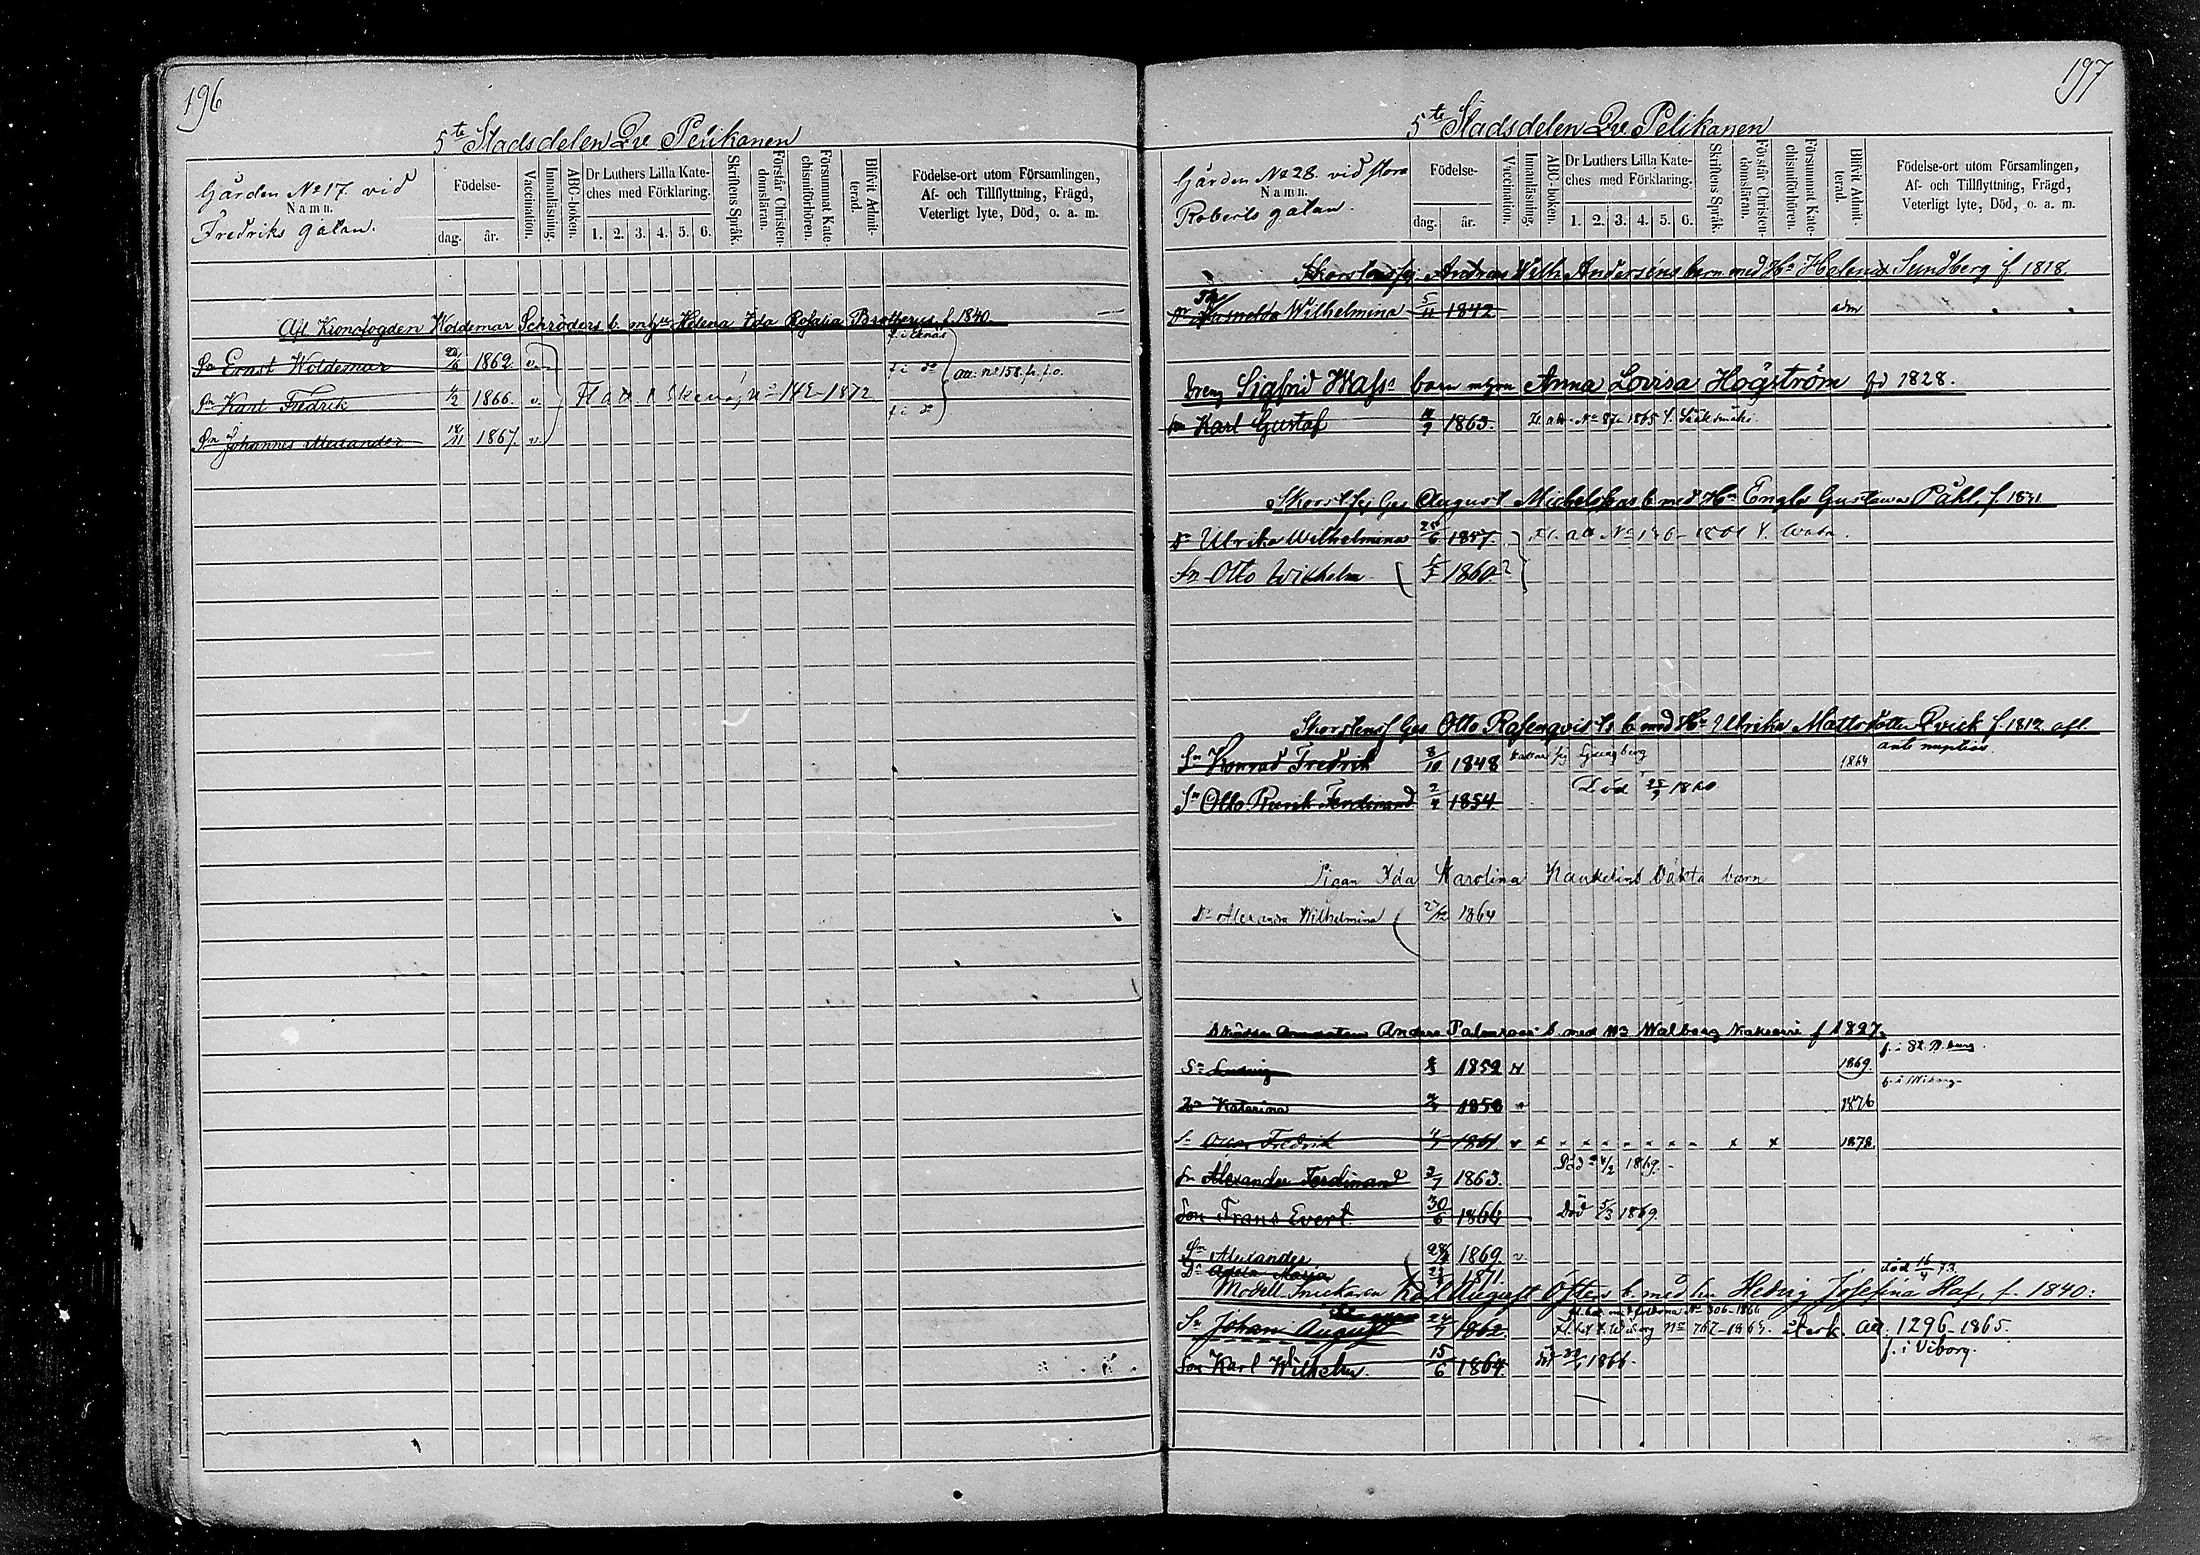 196
5te Stadsdelen Qv Pelikanen
Gården No 17. vid
Namn.
Fredriks gatan.
Födelse-
dag. år.
Vaccination.
Innanläsning.
ABC-boken.
Dr Luthers Lilla Kate-
ches med Förklaring.
1. 2. 3. 4. 5. 6.
Skriftens Språk.
Förstår Christen-
domsläran.
Försummat Kate-
chismiförhören.
Blifvit Admit-
terad.
Födelse-ort utom Församlingen,
Af- och Tillflyttning, Frägd,
Veterligt lyte, Död, o. a. m.
Afl. Kronofogden Woldemar Schröders b. Helena Ida Rosalia Brotherus f. 1840.
Sn Ernst Woldemar 1862 v. f. i Eknäs
Sn Karl Fredrik 1/2 1866 v. 142-1872 f i do att: no 158.
Sn Johannes Alexander 18/11 1867 v. f i do
197
5te Stadsdelen Qv Pelikanen
Gården No 28. vid stora
Namn.
Roberts gatan.
Födelse-
dag. år.
Vaccination.
Innanläsning.
ABC-boken.
Dr Luthers Lilla Kate-
ches med Förklaring.
1. 2. 3. 4. 5. 6.
Skriftens Språk.
Förstår Christen-
domsläran.
Försummat Kate-
chismiförhören.
Blifvit Admit-
terad.
Födelse-ort utom Församlingen,
Af- och Tillflyttning, Frägd,
Veterligt lyte, Död, o. a. m.
Skorstensfej. Andreas Wilh. Anderséns barn med Ha Helena Sundberg f. 1818.
Wilhelmina 5/11 1842 adm
Dreng Sigfrid Wass barn Anna Lovisa Hogström fd 1828.
Sn Karl Gustaf 1863. 1865
Skorst fej Ges August Michelssons b. med Ha Engla Gustava Påhl, f. 1831.
Dr Ulrika Wilhelmina 1857.
Sn Otto Wilhelm 1860
Skorstensf Ges Otto Rosenqvists b. med Ha Ulrika Mattsdotter Qvick f. 1812. afl.
ante nuptias.
Sn Konrad Fredrik 8/10 1848 kallar sig Ljungberg 1864
Sn Otto Ferdinand 2/4 1854 Död 25/9 1860
Pigan Ida Karolina oäkta barn
Dr Alexandra Wilhelmina 27/12 1864
Anders b. med Ha Walborg f 1827.
f. i St. P.burg.
Sn Ludvig 1852 v 1869
f. i Wiborg
Dr Katarina 1858 v 1876
Sn Oscar Fredrik 1861. v x x x 1878
Sn Alexander Ferdinand 2/7 1863. Död 1869.
Son Frans Evert 30/6 1866 Död 5/3 1869.
Sn Alexander 1869. v.
Dr Adela Maria 1871. död 16/4 73.
Modell Snickaren Karl August Öfters b. med h. Hedvig Josefina Haf, f. 1840.
Sn Johan August 1862. No 306-1866
Wiborg No 767-1865. att. 1296-1865.
f. i Viborg.
Son Karl Wilhelm. 15/6 1864. död 1866.